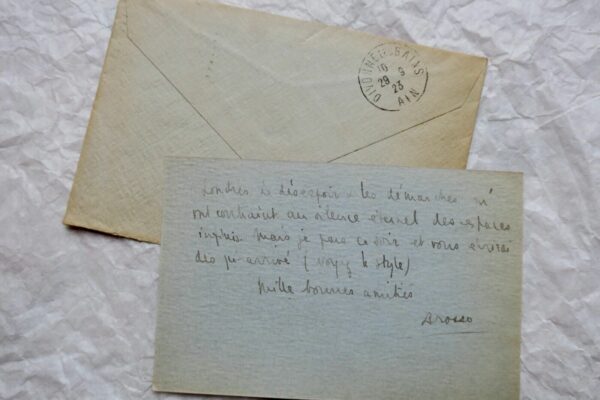 DIVONNE-LES-BAINS
10
29 9
23
AIN
Londres le désespoir les démarches
ont conduit au silence éternel des espaces
infinis mais je pars ce soir et vous écrirai
dès arrivé (voyez le style)
Mille bonnes amitiés
Brosso